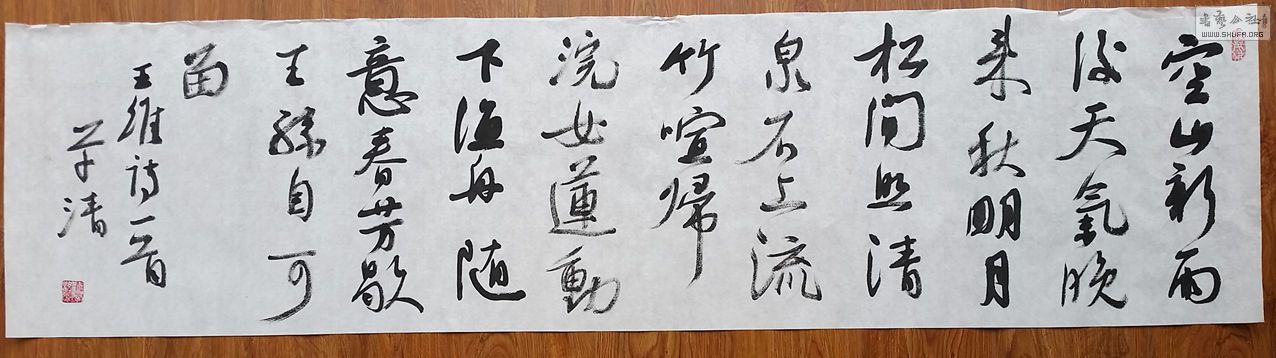 空山新雨
後天氣晚
来秋明月
松间照清
泉石上流
竹喧帰
浣女蓮動
下渔舟随
意春芳歇
王孫自可
留
王維诗一首
清
書藝公社
WWW.SHUFA.ORG